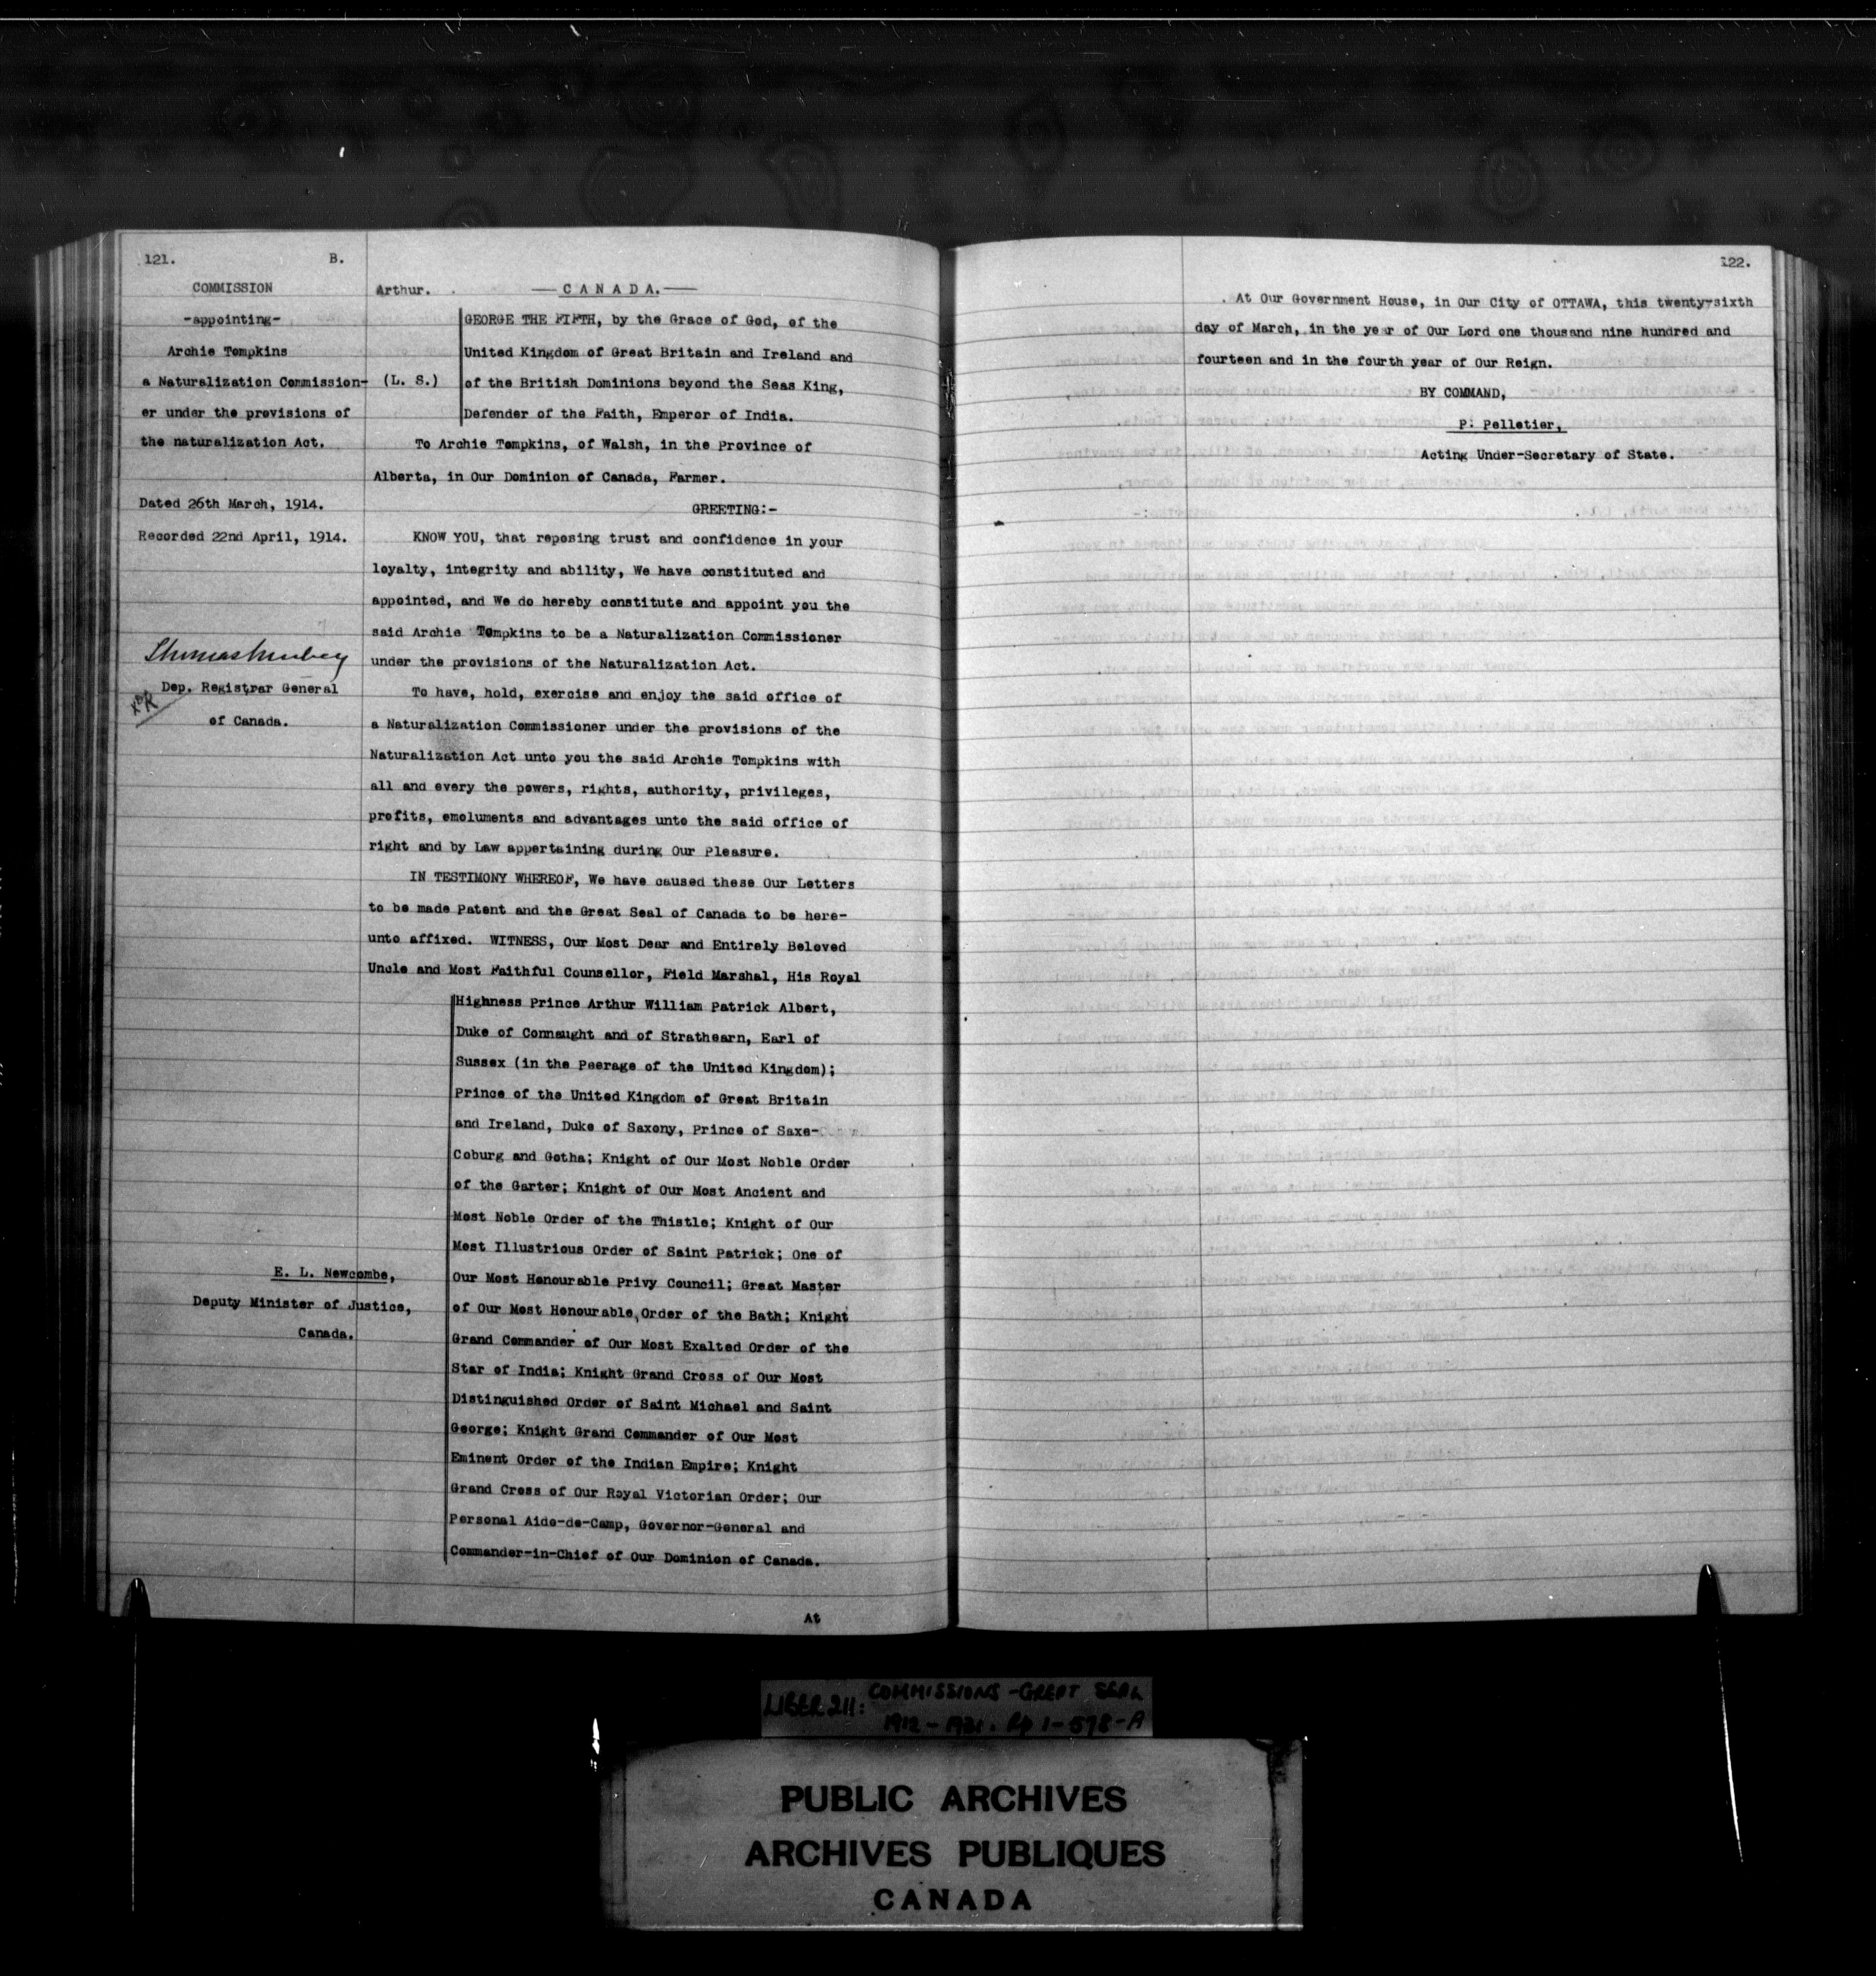 121. B.
COMMISSION
-appointing-
Archie Tompkins
a Naturalization Commission-
er under the provisions of
the naturalization Act.
Dated 26th March, 1914.
Recorded 22nd April, 1914.
Dep. Registrar General
of Canada.
E. L. Newcombe,
Deputy Minister of Justice,
Canada.
Arthur. CANADA.
GEORGE THE FIFTH, by the Grace of God, of the
United Kingdom of Great Britain and Ireland and
(L. S.) of the British Dominions beyond the Seas King,
Defender of the Faith, Emperor of India.
To Archie Tompkins, of Walsh, in the Province of
Alberta, in Our Dominion of Canada, Farmer.
GREETING:-
KNOW YOU, that reposing trust and confidence in your
loyalty, integrity and ability, We have constituted and
appointed, and We do hereby constitute and appoint you the
said Archie Tompkins to be a Naturalization Commissioner
under the provisions of the Naturalization Act.
To have, hold, exercise and enjoy the said office of
a Naturalization Commissioner under the provisions of the
Naturalization Act unto you the said Archie Tompkins with
all and every the powers, rights, authority, privileges,
profits, emoluments and advantages unto the said office of
right and by Law appertaining during Our Pleasure.
IN TESTIMONY WHEREOF, We have caused these Our Letters
to be made Patent and the Great Seal of Canada to be here-
unto affixed. WITNESS, Our Most Dear and Entirely Beloved
Uncle and Most Faithful Counsellor, Field Marshal, His Royal
Highness Prince Arthur William Patrick Albert,
Duke of Connaught and of Strathearn, Earl of
Sussex (in the Peerage of the United Kingdom);
Prince of the United Kingdom of Great Britain
and Ireland, Duke of Saxony, Prince of Saxe-
Coburg and Gotha; Knight of Our Most Noble Order
of the Garter; Knight of Our Most Ancient and
Most Noble Order of the Thistle; Knight of Our
Most Illustrious Order of Saint Patrick; One of
Our Most Honourable Privy Council; Great Master
of Our Most Honourable Order of the Bath; Knight
Grand Commander of Our Most Exalted Order of the
Star of India; Knight Grand Cross of Our Most
Distinguished Order of Saint Michael and Saint
George; Knight Grand Commander of Our Most
Eminent Order of the Indian Empire; Knight
Grand Cross of Our Royal Victorian Order; Our
Personal Aide-de-Camp, Governor-General and
Commander-in-Chief of Our Dominion of Canada.
At
122.
At Our Government House, in Our City of OTTAWA, this twenty-sixth
day of March, in the year of Our Lord one thousand nine hundred and
fourteen and in the fourth year of Our Reign.
BY COMMAND,
P. Pelletier,
Acting Under-Secretary of State.
LIBER 211: COMMISSIONS - GREAT SEAL
1912 - 1921. Pp 1-578-A
PUBLIC ARCHIVES
ARCHIVES PUBLIQUES
CANADA